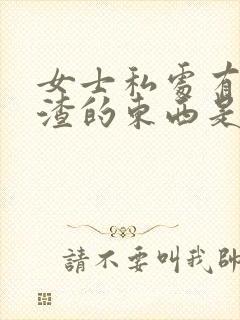 女士私處有
渣的東西是
請不要叫我帥